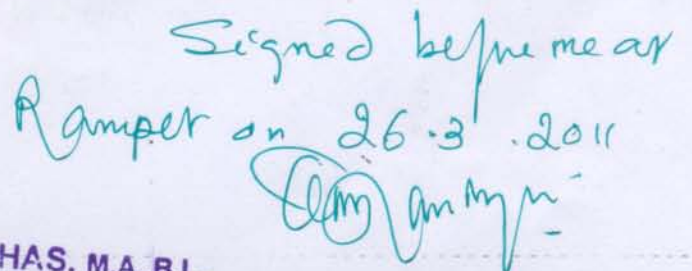 Signed before me at
Rampet on 26.3.2011
HAS, M.A. B.L.